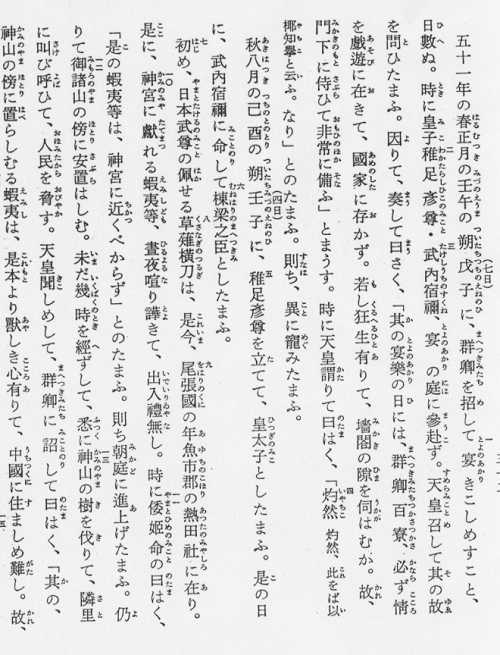 五十一年の春正月の壬午の朔戊子に、群卿を招して宴きこしめすこと、
日數ぬ。時に皇子稚足彦尊・武内宿禰、宴の庭に參赴ず。天皇召して其の故
を問ひたまふ。因りて、奏して曰さく、「其の宴樂の日には、群卿百寮、必ず情
を戯遊に在きて、國家に存かず。若し狂生有りて、墻閤の隙を伺はむか。故、
門下に侍ひて非常に備ふ」とまうす。時に天皇謂りて曰はく、「灼然 灼然、此をば以
椰知擧と云ふ。なり」とのたまふ。則ち、異に寵みたまふ。
秋八月の己酉の朔壬子に、稚足彦尊を立てて、皇太子としたまふ。是の日
に、武内宿禰に命して棟梁之臣としたまふ。
初め、日本武尊の佩せる草薙横刀は、是今、尾張國の年魚市郡の熱田社に在り。
是に、神宮に獻れる蝦夷等、晝夜喧り譁きて、出入禮無し。時に倭姫命の曰はく、
「是の蝦夷等は、神宮に近くべからず」とのたまふ。則ち朝庭に進上げたまふ。仍
りて御諸山の傍に安置はしむ。未だ幾時を經ずして、悉に神山の樹を伐りて、隣里
に叫び呼ひて、人民を脅す。天皇聞しめして、群卿に詔して曰はく、「其の、
神山の傍に置らしむる蝦夷は、是本より獸しき心有りて、中國に住ましめ難し。故、